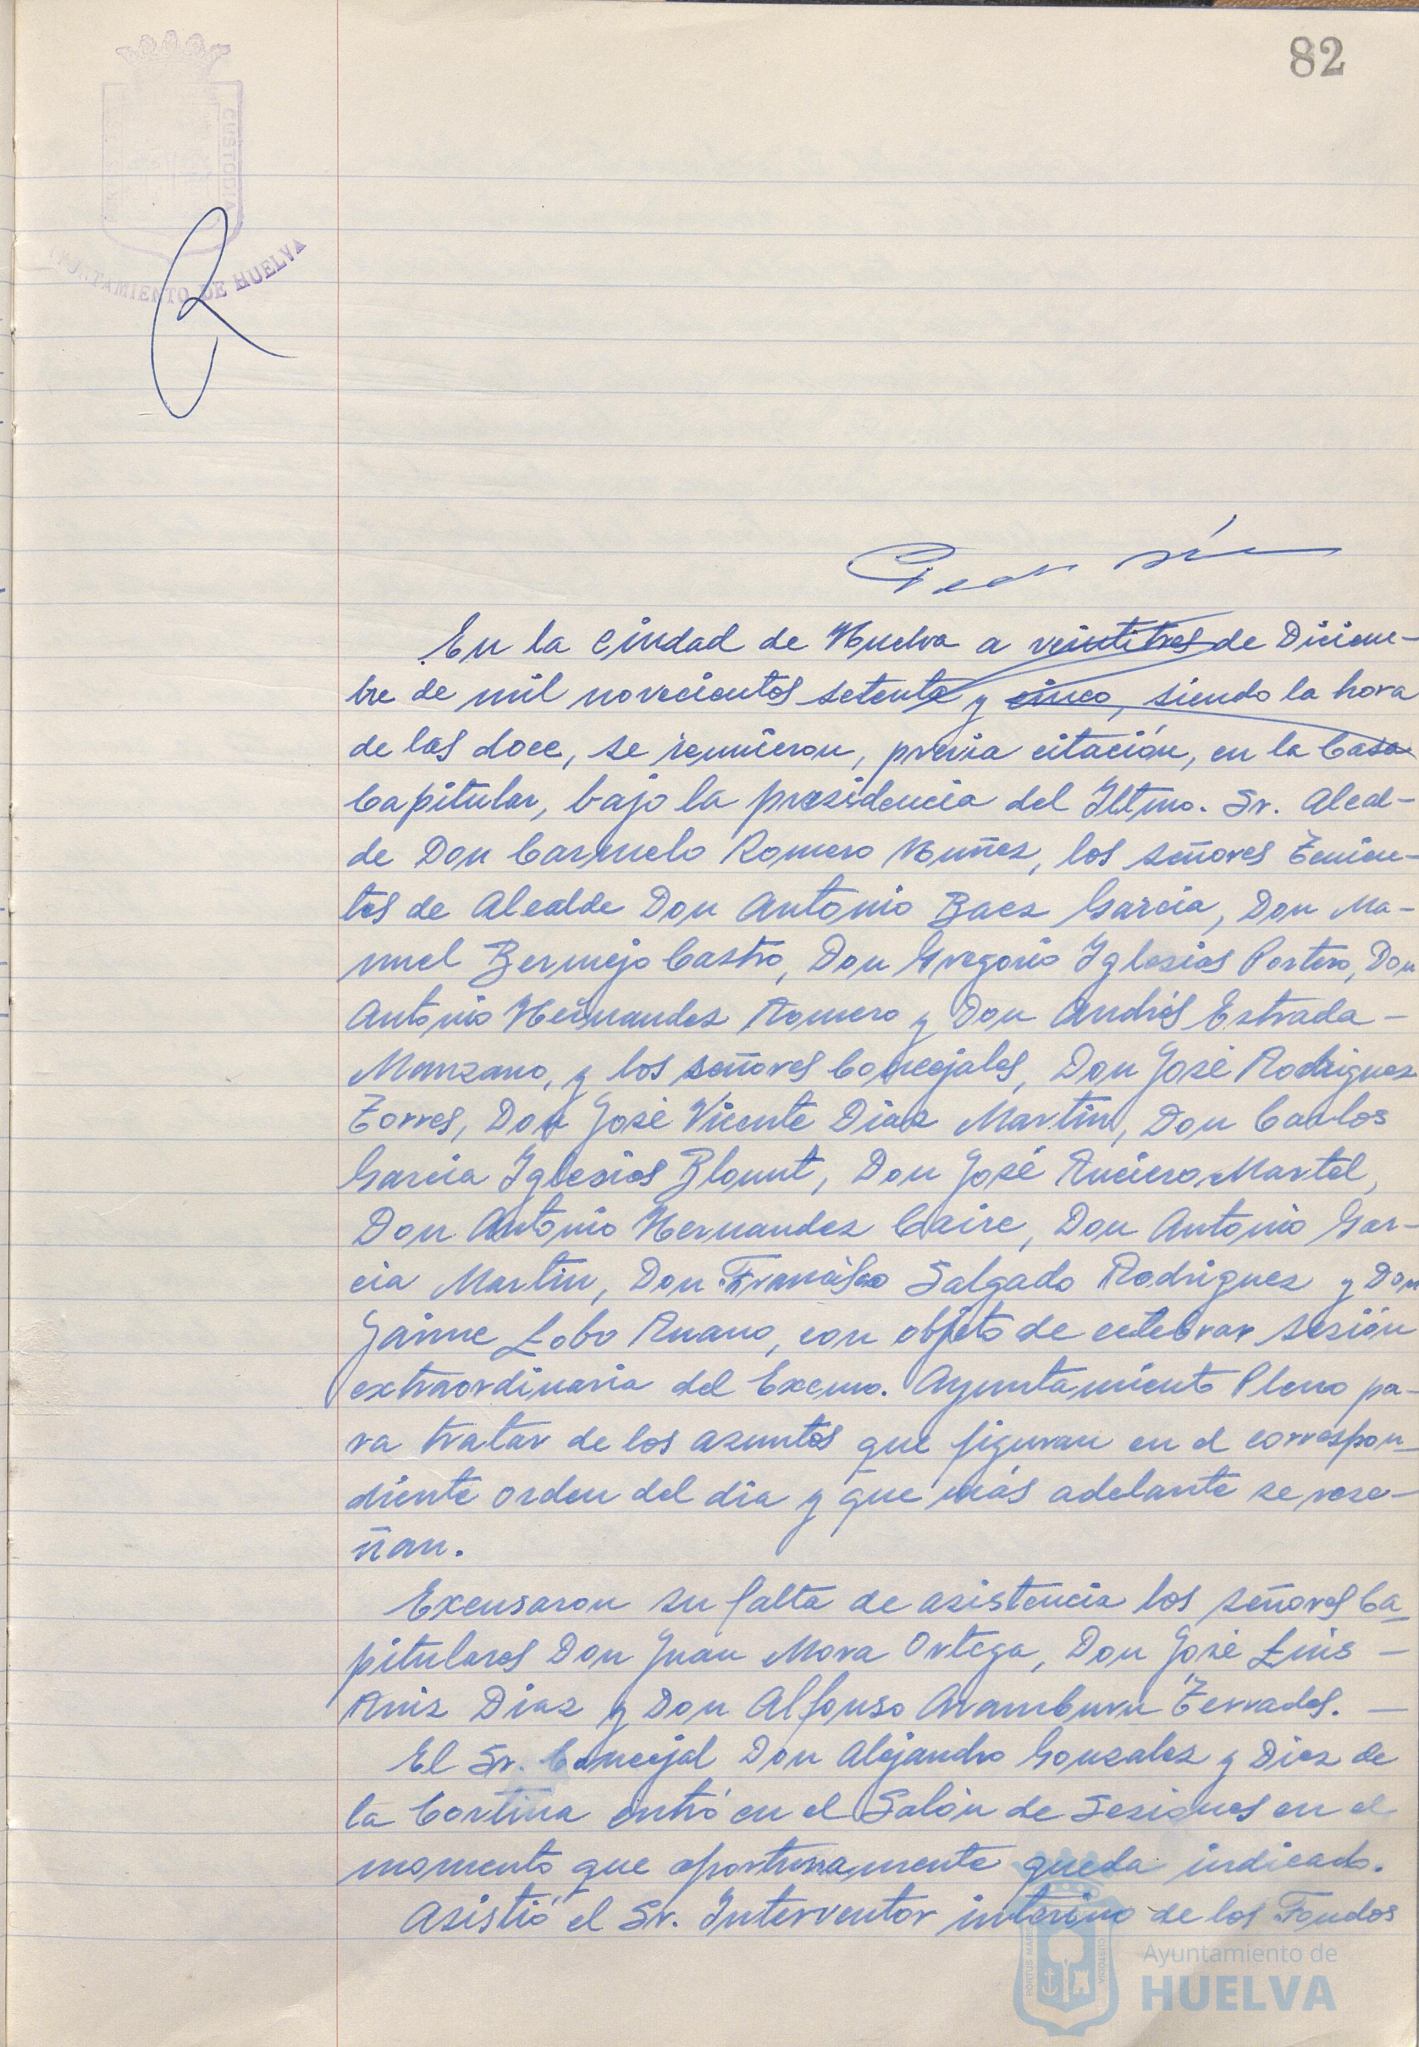 82
CUSTODIA
AYUNTAMIENTO DE HUELVA
En la ciudad de Huelva a veintitres de Diciem-
bre de mil novecientos setenta y cinco, siendo la hora
de las doce, se reunieron, previa citación, en la Casa
Capitular, bajo la presidencia del Iltmo. Sr. Alcal-
de Don Carmelo Romero Nuñez, los señores Tenien-
tes de Alcalde Don Antonio Baez Garcia, Don Ma-
nuel Bermejo Castro, Don Gregorio Iglesias Portero, Don
Antonio Hernandez Romero y Don Andrés Estrada -
Manzano, y los señores Concejales, Don José Rodriguez
Torres, Don José Vicente Diaz Martin, Don Carlos
Garcia Iglesias Blount, Don José Ruciero Martel,
Don Antonio Hernandez Caire, Don Antonio Gar-
cia Martin, Don Francisco Salgado Rodriguez y Don
Jaime Lobo Ruano, con objeto de celebrar sesión
extraordinaria del Excmo. Ayuntamiento Pleno pa-
ra tratar de los asuntos que figuran en el correspon-
diente orden del dia y que más adelante se rese-
ñan.
Excusaron su falta de asistencia los señores Ca-
pitulares Don Juan Mora Ortega, Don José Luis -
Ruiz Diaz y Don Alfonso Aramburu Terrades. -
El Sr. Concejal Don Alejandro Gonzalez y Diez de
la Cortina entró en el Salón de Sesiones en el
momento que oportunamente queda indicado.
Asistió el Sr. Interventor interino de los Fondos
PORTUS MARIS
CUSTODIA
Ayuntamiento de
HUELVA